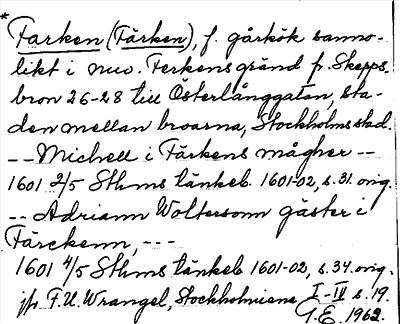 * Farken (Färken), f. gårkök sanno-
likt i nuv. Ferkens gränd fr. Skepps-
bron 26-28 till Österlånggatan, sta-
den mellan broarna, Stockholms stad.
-- Michell i Färkens mågher --
1601 2/5 Sthms tänkeb. 1601-02, s. 31. orig.
-- Adriann Woltersonn gäster i
Färckenn, ---
1601 4/5 Sthms tänkeb 1601-02, s. 34. orig.
jfr F.U. Wrangel, Stockholmiana I-IV s. 19.
G.E. 1962.